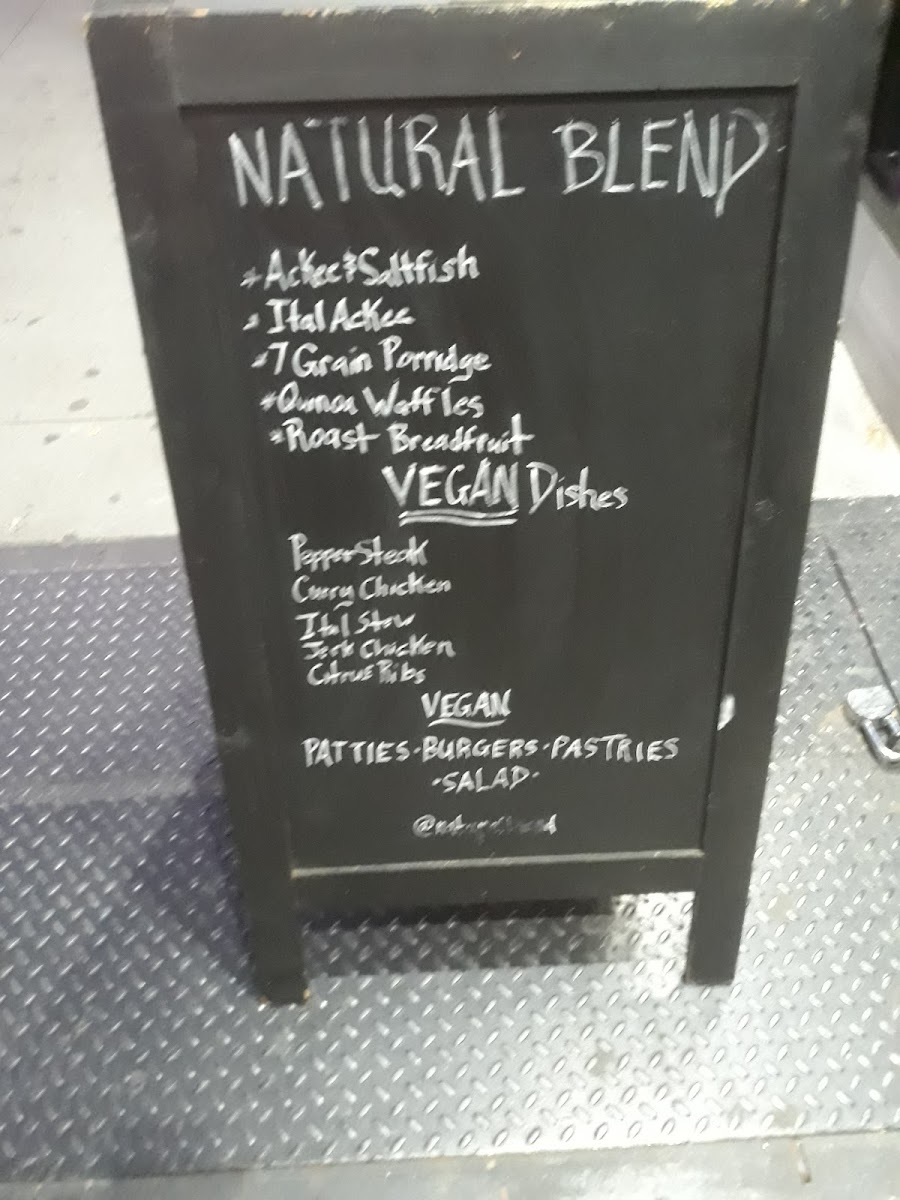 NATURAL BLEND
*Ackee & Saltfish
*Ital Ackee
*7 Grain Porridge
*Quinoa Waffles
*Roast Breadfruit
VEGAN Dishes
Pepper Steak
Curry Chicken
Ital Stew
Jerk Chicken
Citrus Ribs
VEGAN
PATTIES·BURGERS·PASTRIES
·SALAD·